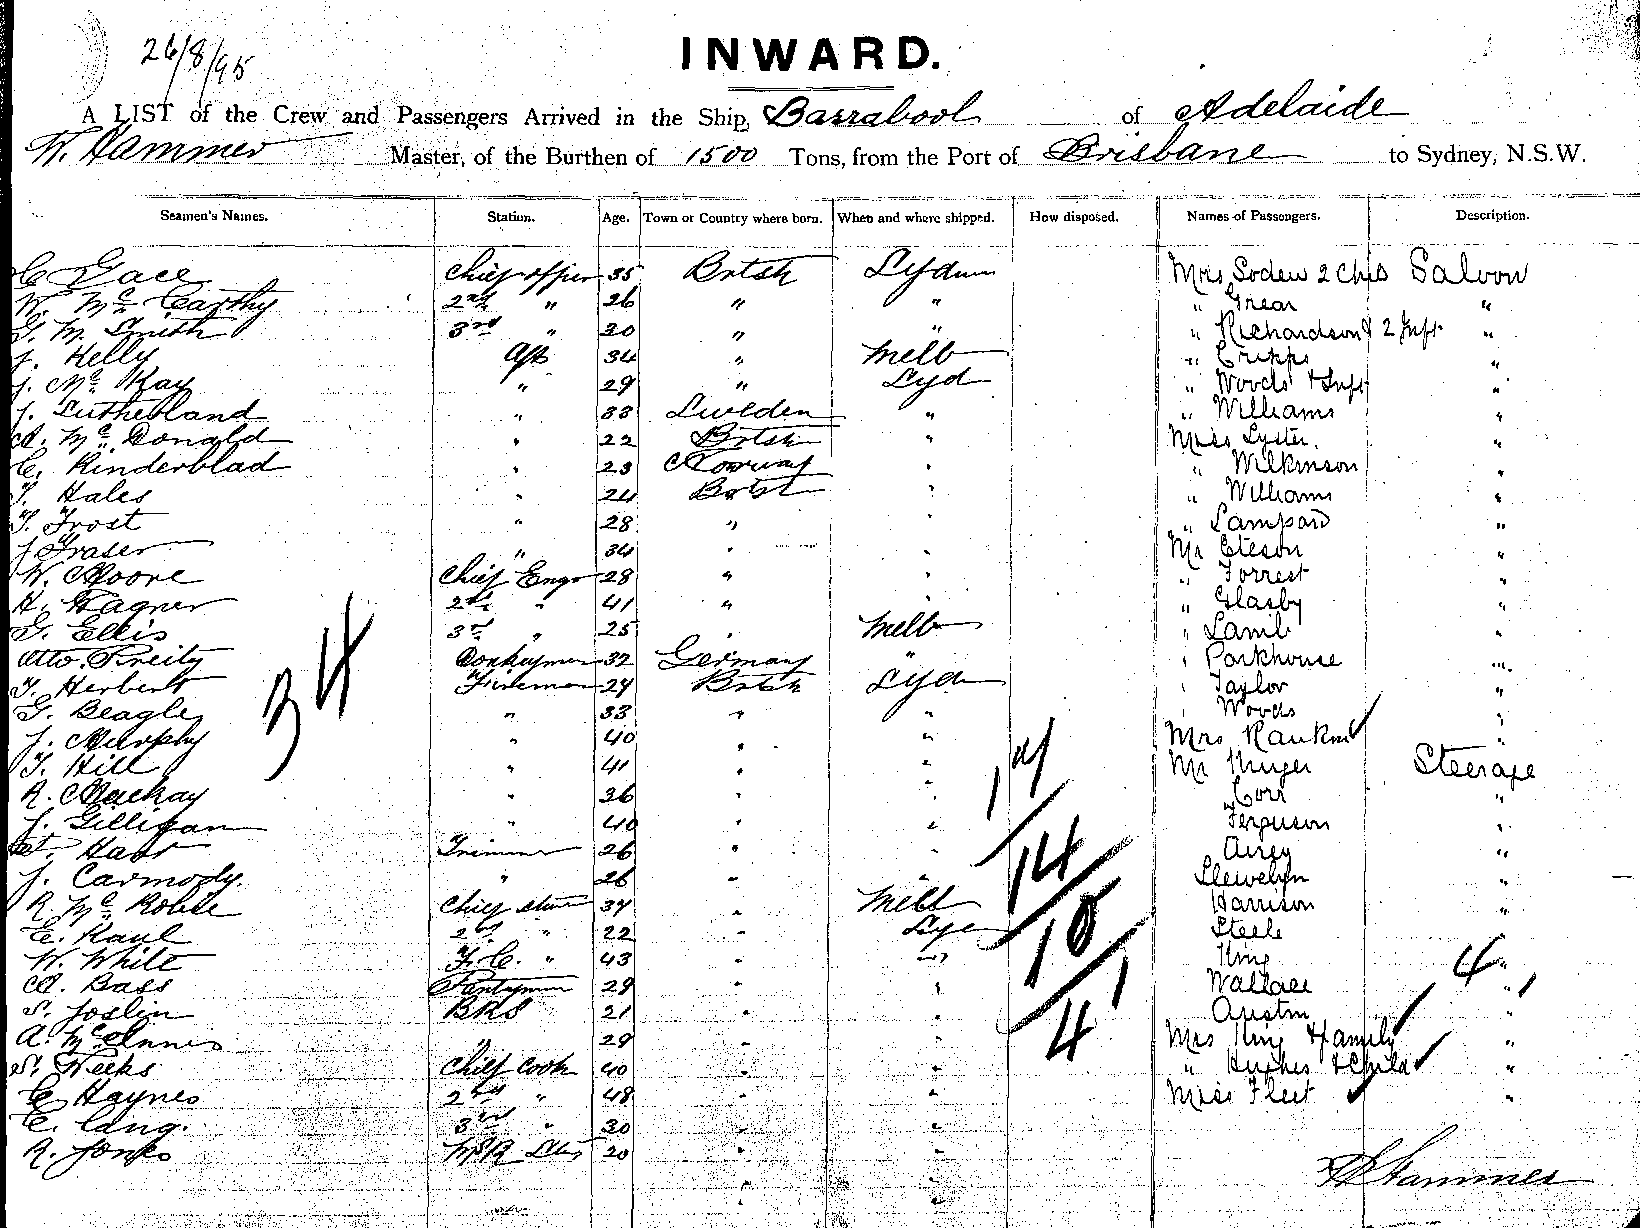 26/8/95
INWARD.
A LIST of the Crew and Passengers Arrived in the Ship, Barrabool of Adelaide
W. Hammer Master, of the Burthen of 1500 Tons, from the Port of Brisbane to Sydney, N.S.W.
Seamen's Names. Station. Age. Town or Country where born. When and where shipped. How disposed. Names of Passengers. Description.
C Gace Chief officer 35 Brtsh Sydney Mrs Soden 2 Chds Saloon
W. Mc Carthy 2nd " 26 " " " Grear "
G. M. Smith 3rd " 30 " " " Richardson & 2 Inft "
J. Kelly AB 34 " Melb " Cripps "
J. Mc Kay " 29 " Syd " Woods & Inft "
J. Sutherland " 33 Sweden " " Williams "
A. Mc Donald " 22 Brtsh " Miss Lyster. "
C. Kinderblad " 23 Norway " " Wilkinson "
T. Hales " 24 Brtsh " " Williams "
T. Frost " 28 " " " Lampard "
J Fraser " 34 " " Mr Eteson "
W. Moore Chief Engr 28 " " " Forrest "
H. Wagner 2nd " 41 " " " Glasby "
G. Ellis 3rd " 25 " Melb " Lamb "
Otto. Donkeyman 32 Germany " " Parkhouse "
T. Herbert Fireman 24 Brtsh Syd " Taylor "
G. Beagley " 33 " " " Woods "
J. Murphy " 40 " " Mrs Rankin "
T. Hill " 41 " " Mr Steerage
R. Mackay " 36 " " " Corr "
J. Gilligan " 40 " " Ferguson "
Hart Trimmer 26 " " Airey "
J. Carmody. " 26 " " Llewelyn "
R Mc Robbie Chief Stwd 34 " Melb Harrison "
E. Raul 2nd " 22 " Syd Steele "
W. White F.C. " 43 " " King "
A. Bass Pantryman 29 " " Wallace "
S. Joslin BKS 21 " " Austin
A. McInnes " 29 " " Mrs King & family "
S. Weeks Chief Cook 40 " " " Hughes & Child "
C. Haynes 2nd " 48 " " Miss Fleet "
E. Lang. 3rd " 30 " "
R. Jones 20 " "
34
17
14
10
4
1
4
W Hammer